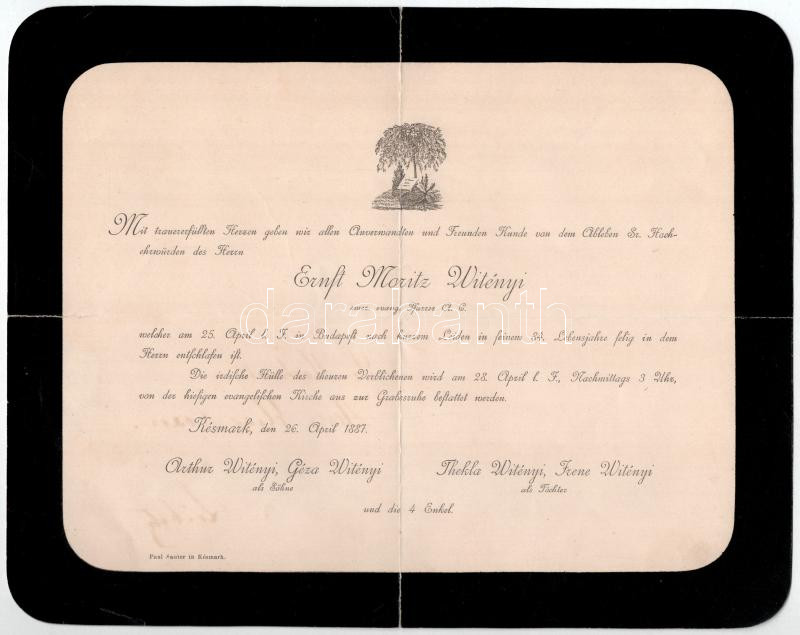 Mit trauererfüllten Herzen geben wir allen Anverwandten und Freunden Kunde von dem Ableben Sr. Hoch-
ehrwürden des Herrn
Ernst Moritz Witényi
emer. evang. Pfarrer A. C.
welcher am 25. April l. J. in Budapest nach kurzem Leiden in seinem 84. Lebensjahre selig in dem
Herrn entschlafen ist.
Die irdische Hülle des theuren Verblichenen wird am 28. April l. J., Nachmittags 3 Uhr,
von der hiesigen evangelischen Kirche aus zur Grabesruhe bestattet werden.
Késmark, den 26. April 1887.
Arthur Witényi, Géza Witényi
als Söhne
Thekla Witényi, Irene Witényi
als Töchter
und die 4 Enkel.
Paul Sauter in Késmark.
darabanth